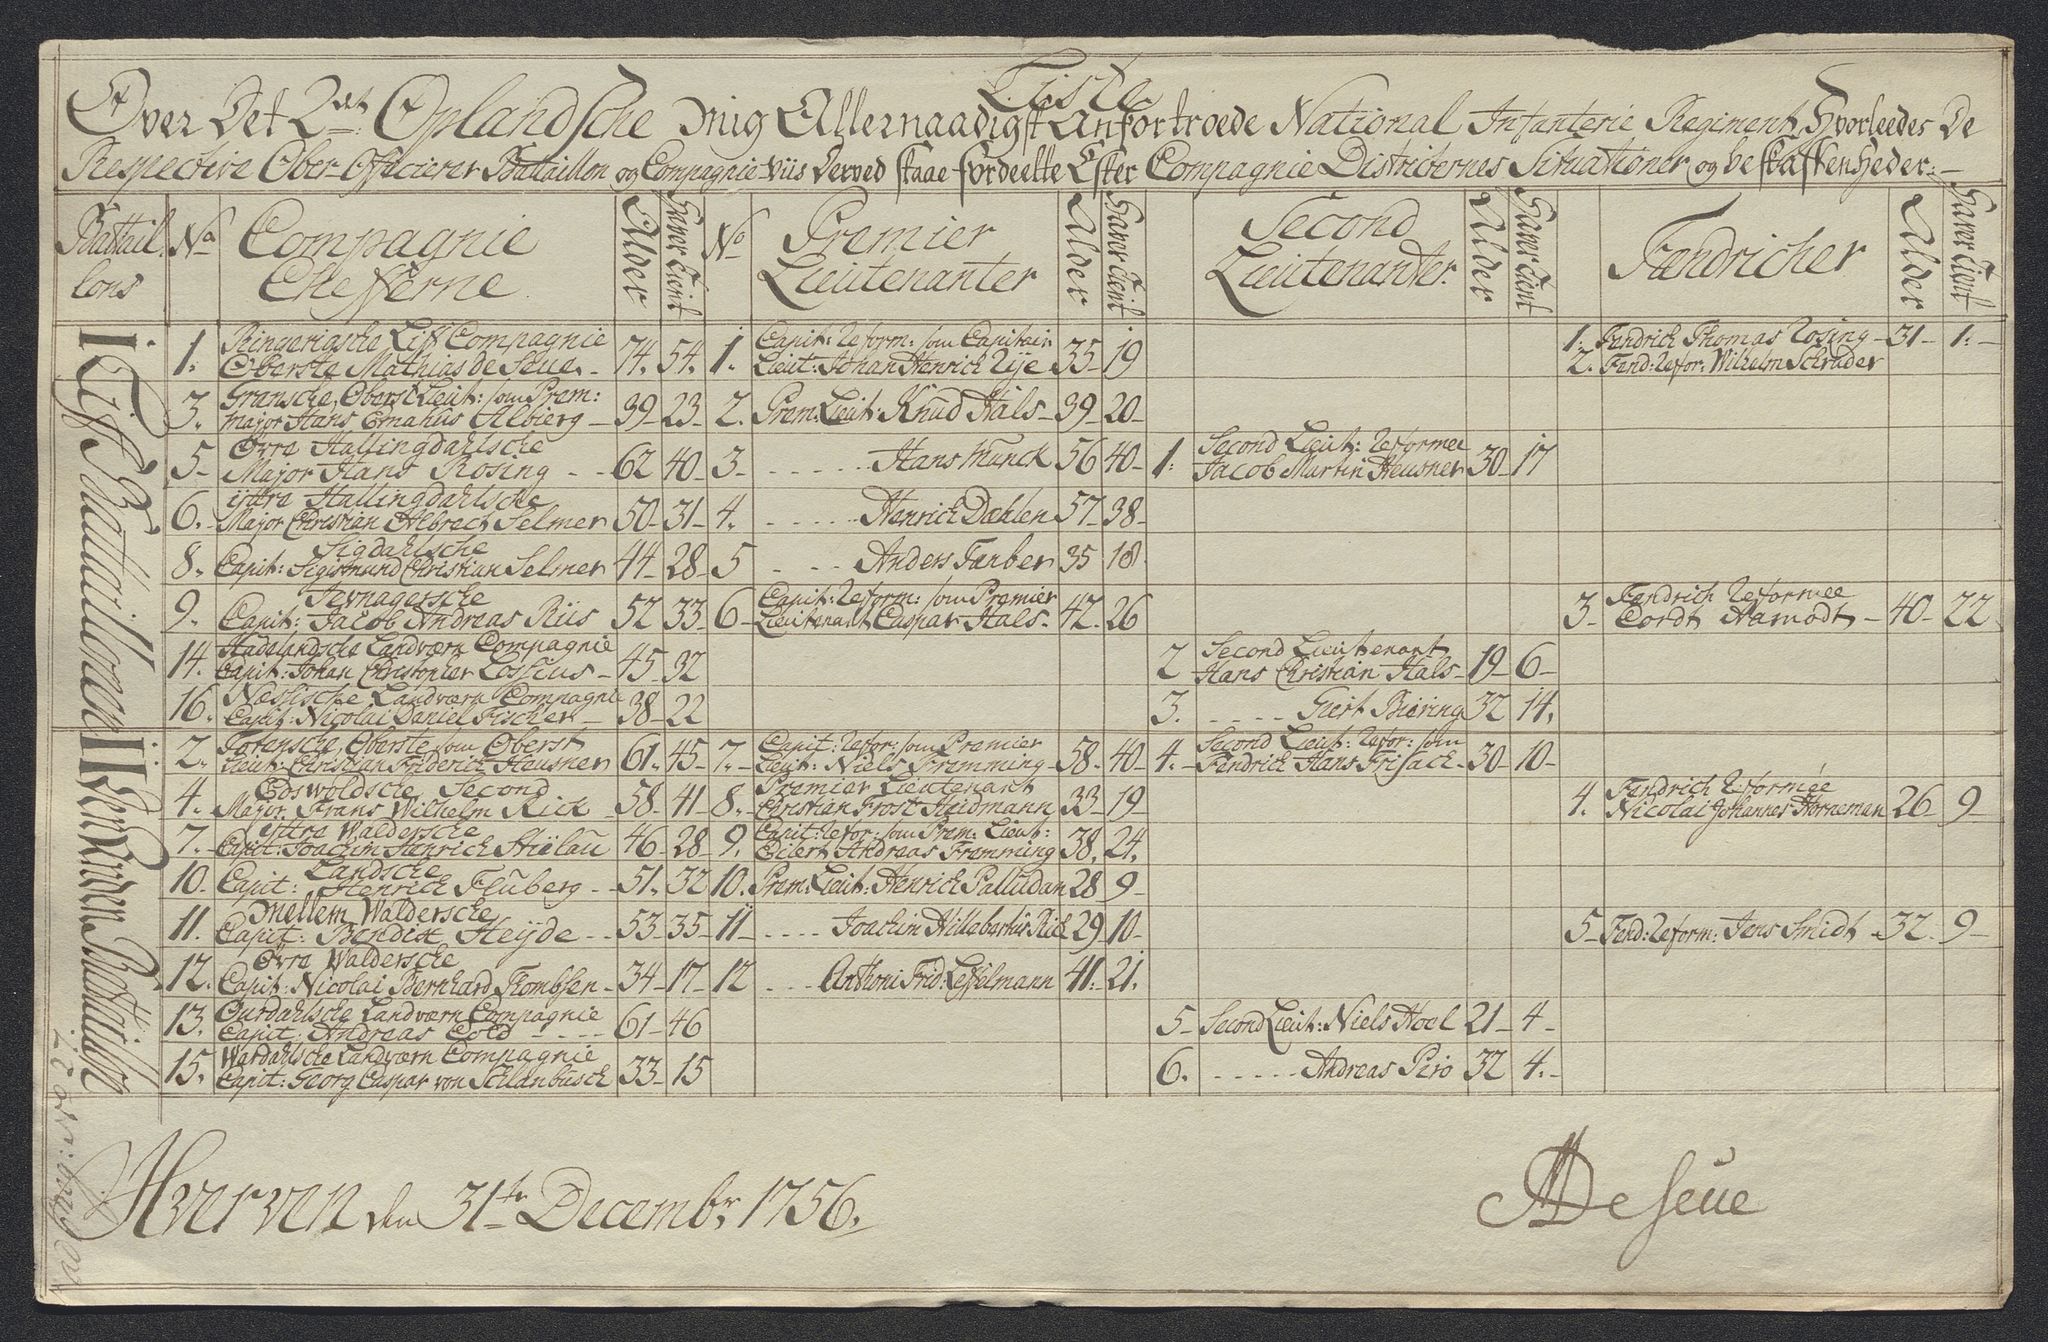 Liste
Over Det 2det Oplandsche mig Allernaadigst Anfortroede National Infanterie Regiment, Hvorleedes De
Respective Ober-Officierer Bataillon og Compagnie-viis derved staae fordeelte Efter Compagnie Districternes Situationer og beskaffenheder:
Batail-
lons
No
Compagnie
Chefferne
Alder
Haver Tient
No
Premier
Lieutenanter
Alder
Haver Tient
Second
Lieutenanter
Alder
Haver Tient
Fændricher
Alder
Haver Tient
I: Liff Bataillonen
1. Ringerigsche Liff Compagnie
Oberste Mathias de Seue. 74. 54. 1. Capit: Reform: som Capitain
Lieut: Johan Henrich Rÿe 35 19 1. Fendrich Thomas Rosing 31 1.
2. Fend: Refor: Wilhelm Schrøder
3. Gransche, Oberst Lieut: som Prem:
Major Hans Emahus Albierg 39 23 2. Prem: Lieut: Knud Hals 39 20
5 Øvre Hallingdahlsche
Major Hans Rosing 62 40 3 Hans Munck 56 40 1. Second Lieut: Reformee
Jacob Martin Heusner 30 17
6. ÿttre Hallingdahlsche
Major Christian Albrech Selmer 50 31 4. Henrich Dæhlen 57 38
8. Sigdahlsche
Capit: Sigismund Christian Selmer 44 28 5 Anders Farber 35 18
9. Jevnagersche
Capit: Jacob Andreas Riis 52 33 6 Capit: Reform: som Premier
Lieutenant Caspar Hals 42 26 3 Fendrich Reformee
Cordt Hamodt 40 22
14. Hadelandsche Landværn Compagnie
Capit: Johan Christopher Lossius 45 32 2 Second Lieutenant
Hans Christian Hals 19 6
16. Næssische Landværn Compagnie
Capit: Nicolai Daniel Fischer 38 22 3. Giert Biering 32 14.
II: Den Anden Bataillon
2. Totensche, Oberste som Oberst
Lieut: Christian Friderich Heusner 61. 45 7. Capit: Refor: som Premier
Lieut: Niels Fremming 58. 40 4. Second Lieut: Refor: som
Fendrich Hans Frisach 30 10
4. Edswoldsche, Second
Major. Frans Wilhelm Rick 58. 41 8. Premier Lieutenant
Christian Frost Heidmann 33 19 4. Fendrich Reformée
Nicolai Johannes Horneman 26 9
7. ÿttre Waldersche
Capit: Joachim Henrich Stielau 46 28 9. Capit: Refor: som Prem: Lieut:
Eilert Andreas Fremming 38. 24.
10. Landsche
Capit: Henrich Fluberg 51. 32 10. Prem: Lieut: Henrich Palludan 28 9
11. Mellem Waldersche
Capit: Bendix Heÿde 53 35 11 Joachim Hillebartus Rick 29 10 5 Fend: Reform: Jens Smidt 32 9
12. Øvre Waldersche
Capit: Nicolai Bernhard Thombsen 34 17 12 Anthoni Frid: Leffelmann 41. 21.
13. Ourdahlsche Landværn Compagnie
Capit: Andreas Cold 61 46 5 Second Lieut: Niels Hoel 21 4
15. Wardahlsche Landværn Compagnie
Capit: Georg Caspar von Schlanbusch 33 15 6. Andreas Piro 32 4.
Hverven den 31te Decembr 1756.
MDeseue